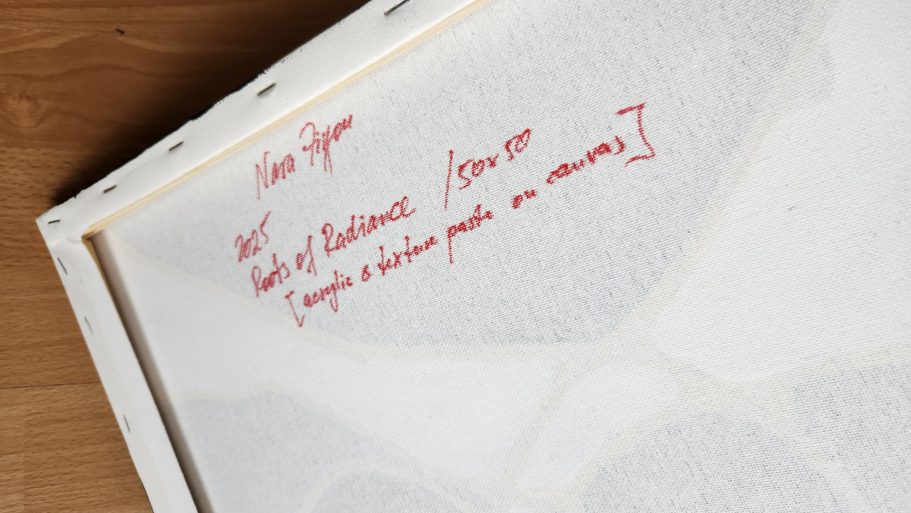 Nara
2025
Roots of Radiance /50x50
[acrylic & texture paste on canvas]